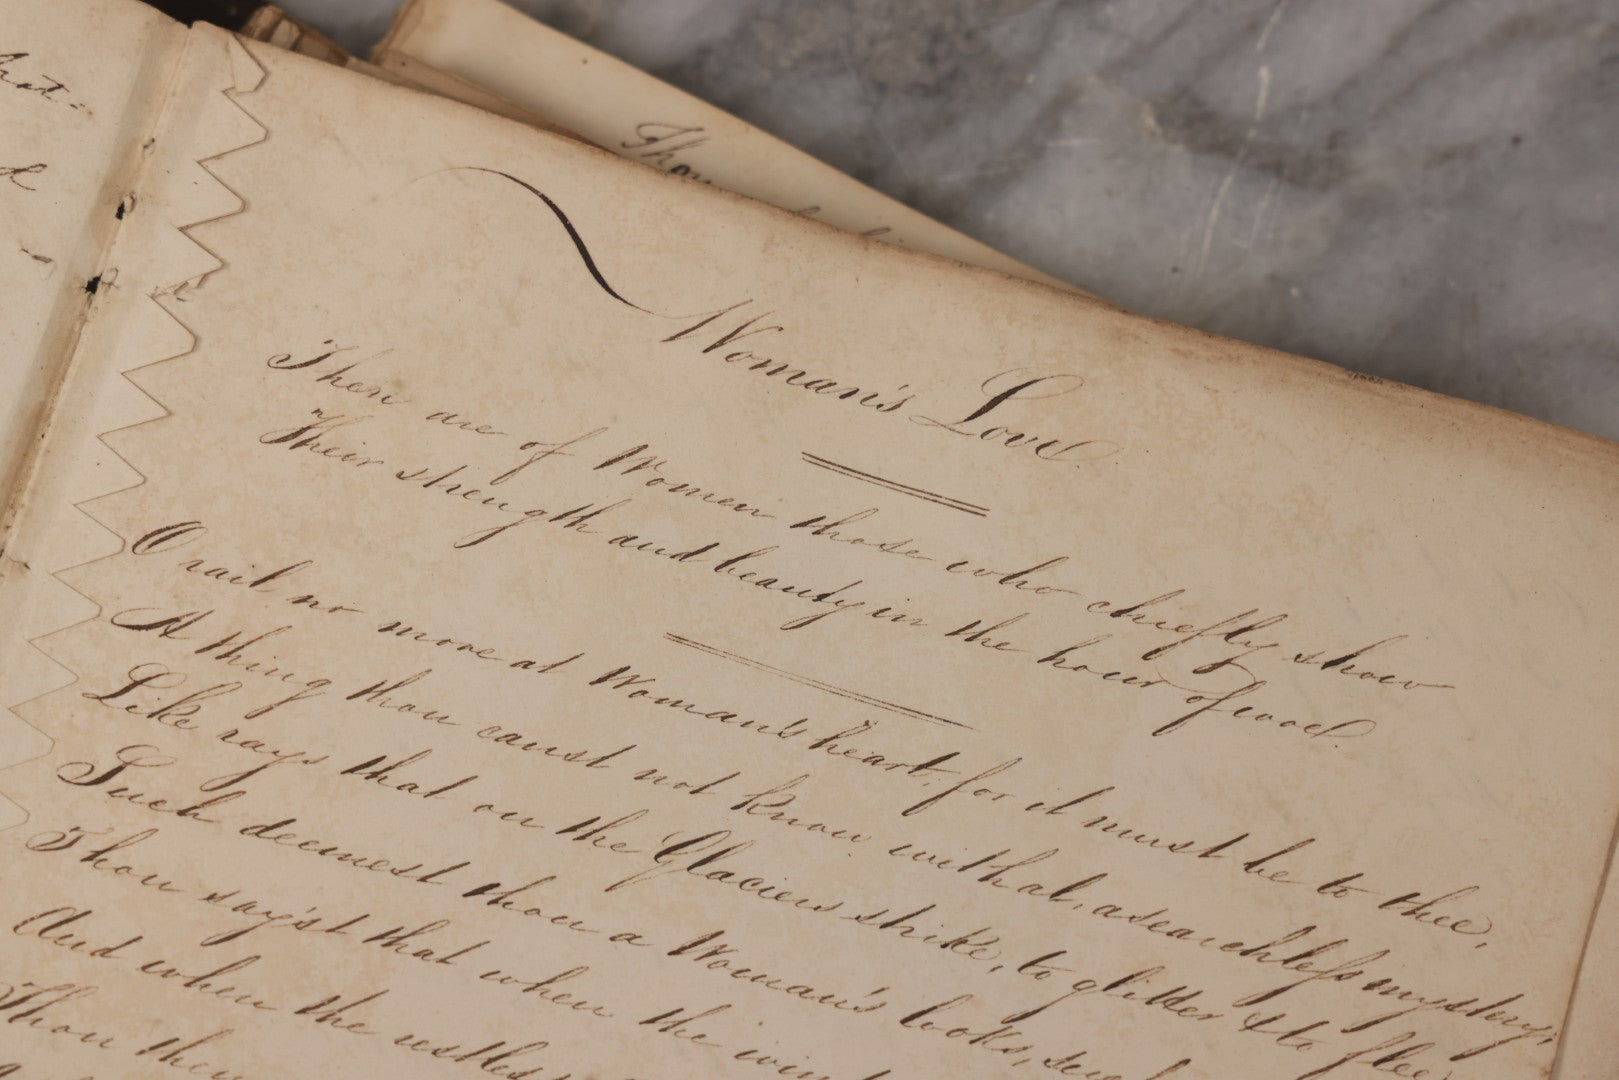 Thou
Woman's Love.
There are of Women those who chiefly show
Their strength and beauty in the hour of woe.
O rail no more at Woman's heart, for it must be to thee,
A thing thou canst not know withal, a searchleſs mystery;
Like rays that on the Glaciers strike, to glitter & to flee
Such deemest thou a Woman's looks, such
Thou say'st that when the
And when the
Thou then